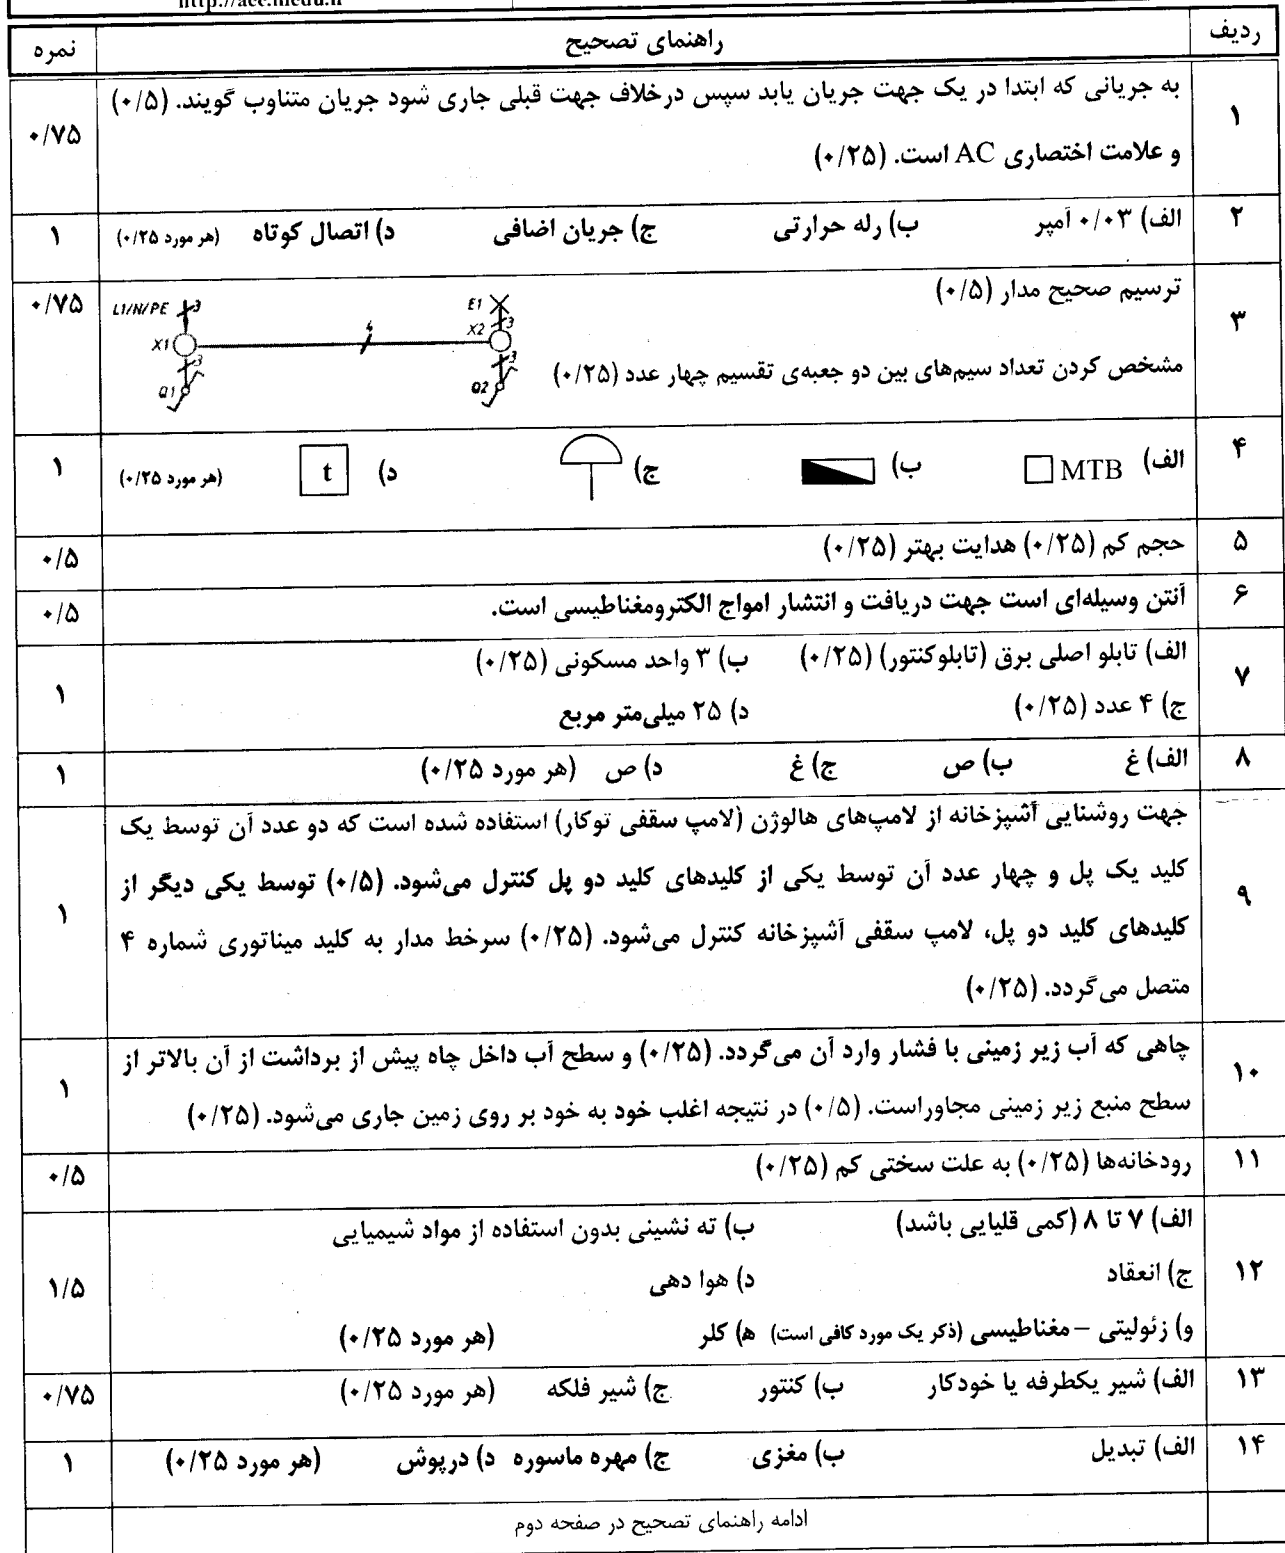 http://aee.medu.ir
ردیف راهنمای تصحیح نمره
۱ به جریانی که ابتدا در یک جهت جریان یابد سپس درخلاف جهت قبلی جاری شود جریان متناوب گویند. (۰/۵) ۰/۷۵
و علامت اختصاری AC است. (۰/۲۵)
۲ الف) ۰/۰۳ آمپر ب) رله حرارتی ج) جریان اضافی د) اتصال کوتاه (هر مورد ۰/۲۵) ۱
۳ ترسیم صحیح مدار (۰/۵) ۰/۷۵
L1/N/PE 3 E1
X1 4 X2 3
مشخص کردن تعداد سیم‌های بین دو جعبه‌ی تقسیم چهار عدد (۰/۲۵)
3 3
Q1 Q2
۴ الف) MTB ب) ج) د) t (هر مورد ۰/۲۵) ۱
۵ حجم کم (۰/۲۵) هدایت بهتر (۰/۲۵) ۰/۵
۶ آنتن وسیله‌ای است جهت دریافت و انتشار امواج الکترومغناطیسی است. ۰/۵
۷ الف) تابلو اصلی برق (تابلوکنتور) (۰/۲۵) ب) ۳ واحد مسکونی (۰/۲۵) ۱
ج) ۴ عدد (۰/۲۵) د) ۲۵ میلی‌متر مربع
۸ الف) غ ب) ص ج) غ د) ص (هر مورد ۰/۲۵) ۱
۹ جهت روشنایی آشپزخانه از لامپ‌های هالوژن (لامپ سقفی توکار) استفاده شده است که دو عدد آن توسط یک ۱
کلید یک پل و چهار عدد آن توسط یکی از کلیدهای کلید دو پل کنترل می‌شود. (۰/۵) توسط یکی دیگر از
کلیدهای کلید دو پل، لامپ سقفی آشپزخانه کنترل می‌شود. (۰/۲۵) سرخط مدار به کلید میناتوری شماره ۴
متصل می‌گردد. (۰/۲۵)
۱۰ چاهی که آب زیر زمینی با فشار وارد آن می‌گردد. (۰/۲۵) و سطح آب داخل چاه پیش از برداشت از آن بالاتر از ۱
سطح منبع زیر زمینی مجاوراست. (۰/۵) در نتیجه اغلب خود به خود بر روی زمین جاری می‌شود. (۰/۲۵)
۱۱ رودخانه‌ها (۰/۲۵) به علت سختی کم (۰/۲۵) ۰/۵
۱۲ الف) ۷ تا ۸ (کمی قلیایی باشد) ب) ته نشینی بدون استفاده از مواد شیمیایی ۱/۵
ج) انعقاد د) هوا دهی
و) زئولیتی – مغناطیسی (ذکر یک مورد کافی است) ه) کلر (هر مورد ۰/۲۵)
۱۳ الف) شیر یکطرفه یا خودکار ب) کنتور ج) شیر فلکه (هر مورد ۰/۲۵) ۰/۷۵
۱۴ الف) تبدیل ب) مغزی ج) مهره ماسوره د) درپوش (هر مورد ۰/۲۵) ۱
ادامه راهنمای تصحیح در صفحه دوم